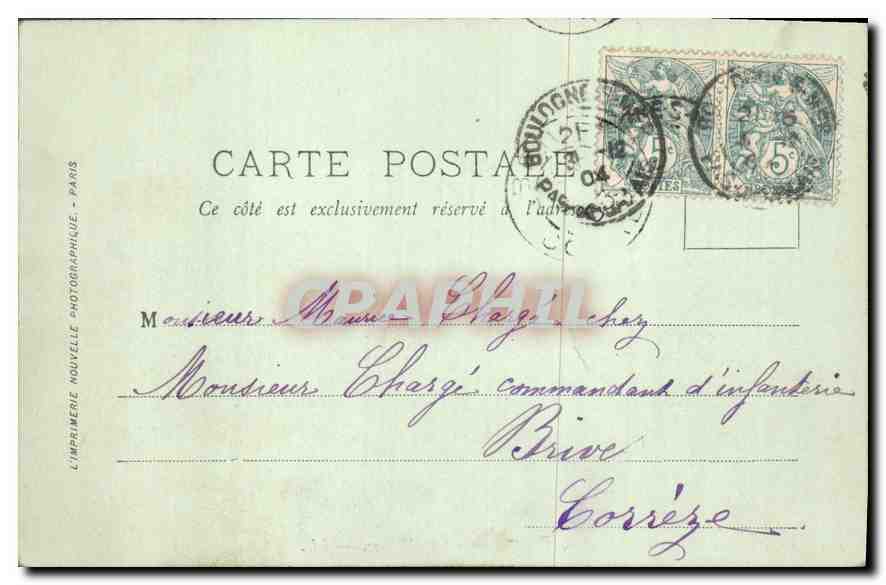 BOULOGNE S MER
2E
12
04
PAS DE CALAIS
5c
5c
CARTE POSTALE
Ce côté est exclusivement réservé à l'adresse
L'IMPRIMERIE NOUVELLE PHOTOGRAPHIQUE. - PARIS
CPAPHIL
Monsieur Maurice Chargé chez
Monsieur Chargé commandant d'infanterie
Brive
Corrèze